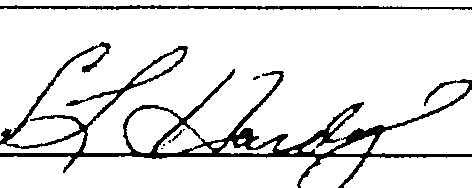 BL Hardy